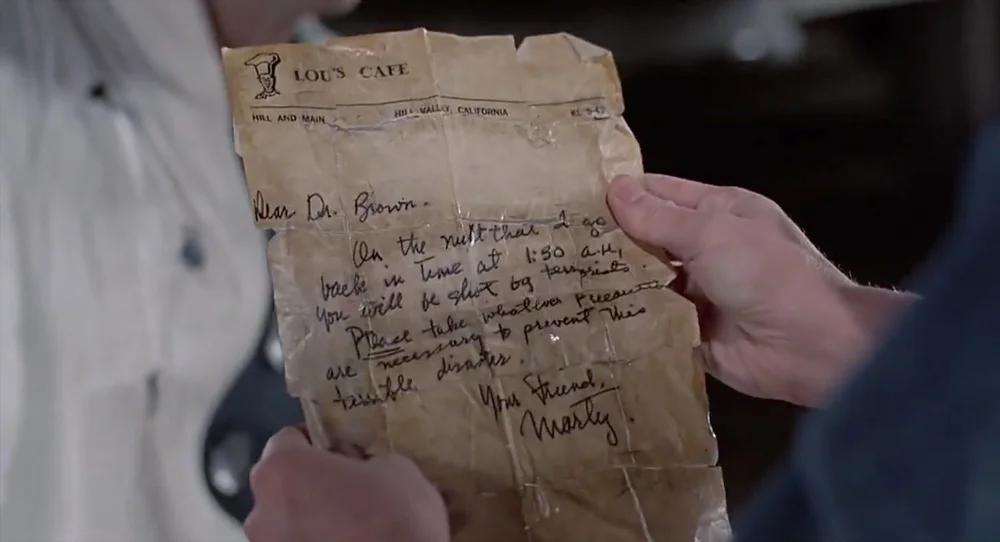 LOU'S CAFE
HILL AND MAIN HILL VALLEY, CALIFORNIA
Dear Dr. Brown.
On the night that I go
back in time at 1:30 A.M,
you will be shot by terrorists.
Please take whatever precautions
are necessary to prevent this
terrible disaster.
Your Friend,
Marty.